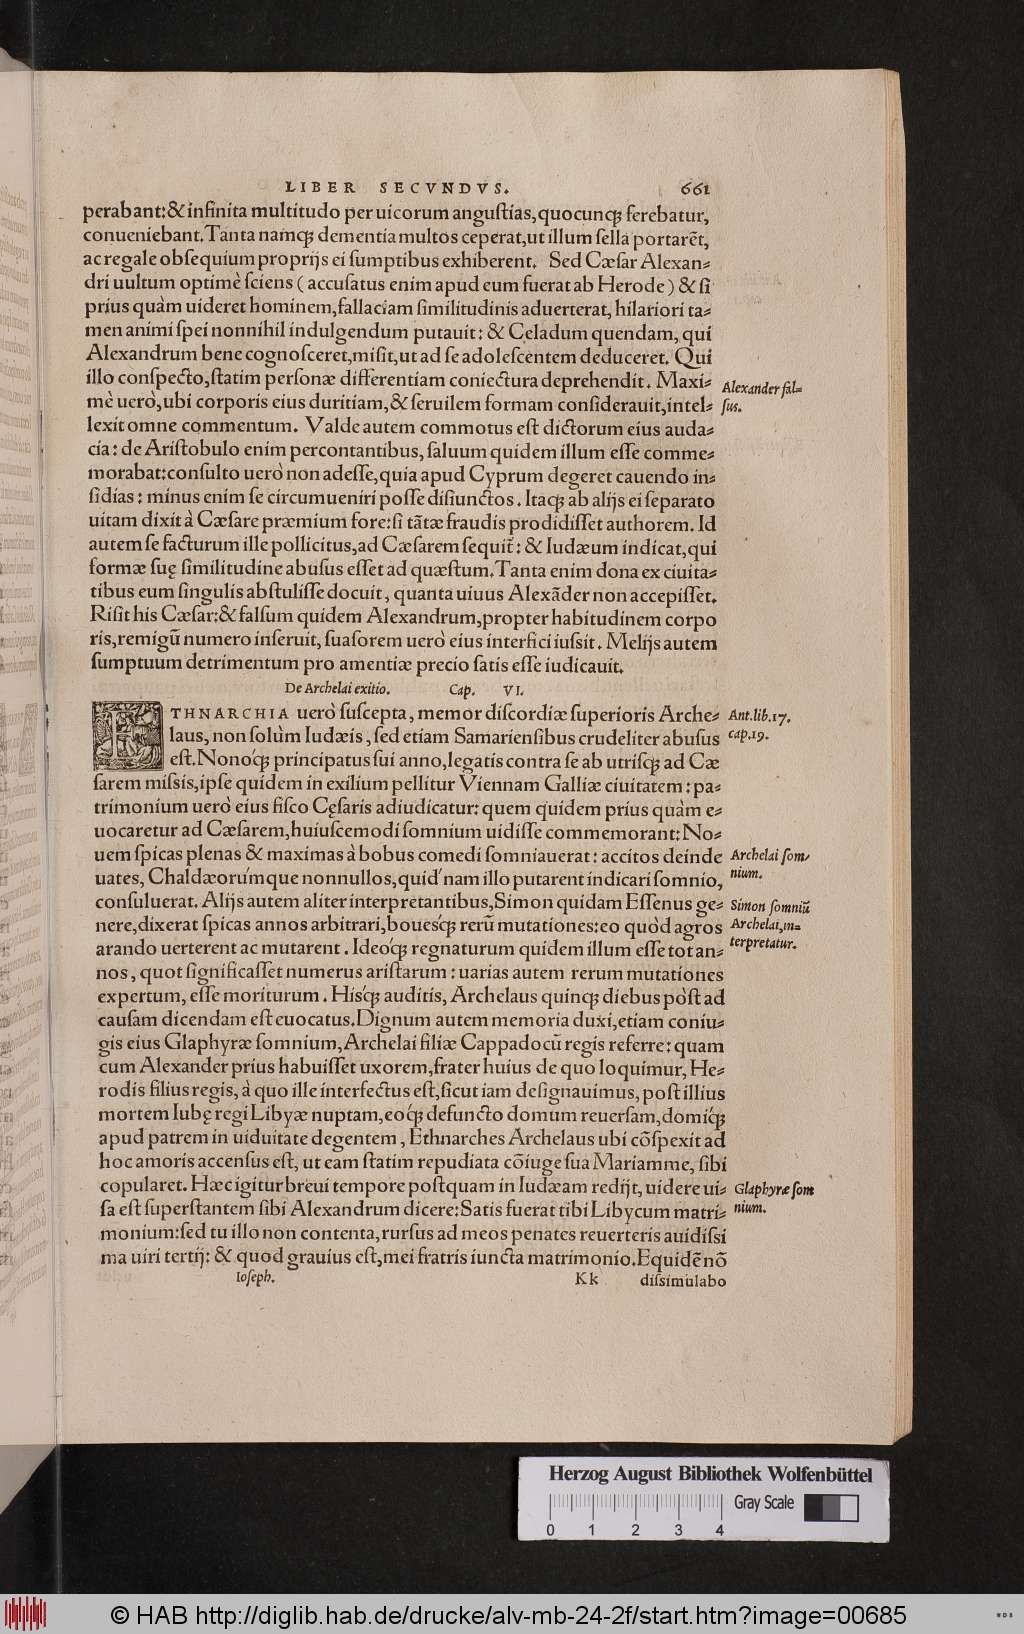 LIBER SECVNDVS. 661
perabant:& infinita multitudo per uicorum anguſtias,quocunqꝫ ferebatur,
conueniebant.Tanta namqꝫ dementia multos ceperat,ut illum ſella portarẽt,
ac regale obſequium proprijs ei ſumptibus exhiberent. Sed Cæſar Alexan⸗
dri uultum optimè ſciens ( accuſatus enim apud eum fuerat ab Herode ) & ſi
prius quàm uideret hominem,fallaciam ſimilitudinis aduerterat, hilariori ta⸗
men animi ſpei nonnihil indulgendum putauit: & Celadum quendam, qui
Alexandrum bene cognoſceret,miſit,ut ad ſe adoleſcentem deduceret. Qui
illo conſpecto,ſtatim perſonæ differentiam coniectura deprehendit. Maxi⸗
Alexander fal⸗
mè uerò,ubi corporis eius duritiam,& ſeruilem formam conſiderauit,intel⸗
ſus.
lexit omne commentum. Valde autem commotus eſt dictorum eius auda⸗
cia: de Ariſtobulo enim percontantibus, ſaluum quidem illum eſſe comme⸗
morabat:conſulto uerò non adeſſe,quia apud Cyprum degeret cauendo in⸗
ſidias: minus enim ſe circumueniri poſſe diſiunctos. Itaqꝫ ab alijs ei ſeparato
uitam dixit à Cæſare præmium fore:ſi tãtæ fraudis prodidiſſet authorem. Id
autem ſe facturum ille pollicitus,ad Cæſarem ſequit̃: & Iudæum indicat,qui
formæ ſuę ſimilitudine abuſus eſſet ad quæſtum.Tanta enim dona ex ciuita⸗
tibus eum ſingulis abſtuliſſe docuit, quanta uiuus Alexãder non accepiſſet.
Riſit his Cæſar:& falſum quidem Alexandrum,propter habitudinem corpo
ris,remigũ numero inſeruit, ſuaſorem uerò eius interfici iuſsit. Melijs autem
ſumptuum detrimentum pro amentiæ precio ſatis eſſe iudicauit.
De Archelai exitio. Cap. VI.
ETHNARCHIA uerò ſuſcepta, memor diſcordiæ ſuperioris Arche⸗
Ant.lib.17.
laus, non ſolùm Iudæis, ſed etiam Samarienſibus crudeliter abuſus
cap.19.
eſt.Nonoq́ꝫ principatus ſui anno,legatis contra ſe ab utriſqꝫ ad Cæ
ſarem miſsis,ipſe quidem in exilium pellitur Viennam Galliæ ciuitatem: pa⸗
trimonium uerò eius fiſco Cęſaris adiudicatur: quem quidem prius quàm e⸗
uocaretur ad Cæſarem,huiuſcemodi ſomnium uidiſſe commemorant: No⸗
uem ſpicas plenas & maximas à bobus comedi ſomniauerat: accitos deinde
Archelai ſom⸗
uates, Chaldæorúmque nonnullos,quid'nam illo putarent indicari ſomnio,
nium.
conſuluerat. Alijs autem aliter interpretantibus,Simon quidam Eſſenus ge⸗
Simon ſomniũ
nere,dixerat ſpicas annos arbitrari,boueśqꝫ rerũ mutationes:eo quòd agros
Archelai,in⸗
arando uerterent ac mutarent. Ideoq́ꝫ regnaturum quidem illum eſſe tot an⸗
terpretatur.
nos, quot ſignificaſſet numerus ariſtarum: uarias autem rerum mutationes
expertum, eſſe moriturum. Hisq́ꝫ auditis, Archelaus quinqꝫ diebus pòſt ad
cauſam dicendam eſt euocatus.Dignum autem memoria duxi,etiam coniu⸗
gis eius Glaphyræ ſomnium,Archelai filiæ Cappadocũ regis referre: quam
cum Alexander prius habuiſſet uxorem,frater huius de quo loquimur, He⸗
rodis filius regis, à quo ille interfectus eſt,ſicut iam deſignauimus, poſt illius
mortem Iubę regi Libyæ nuptam,eoq́ꝫ defuncto domum reuerſam,domiq́ꝫ
apud patrem in uiduitate degentem, Ethnarches Archelaus ubi cõſpexit ad
hoc amoris accenſus eſt, ut eam ſtatim repudiata cõiuge ſua Mariamme, ſibi
copularet. Hæc igitur breui tempore poſtquam in Iudæam redijt, uidere ui⸗
Glaphyræ ſom
ſa eſt ſuperſtantem ſibi Alexandrum dicere: Satis fuerat tibi Libycum matri⸗
nium.
monium:ſed tu illo non contenta,rurſus ad meos penates reuerteris auidiſsi
ma uiri tertij: & quod grauius eſt,mei fratris iuncta matrimonio.Equidẽ nõ
Ioſeph. Kk diſsimulabo
Herzog August Bibliothek Wolfenbüttel
Gray Scale
0 1 2 3 4
© HAB http://diglib.hab.de/drucke/alv-mb-24-2f/start.htm?image=00685